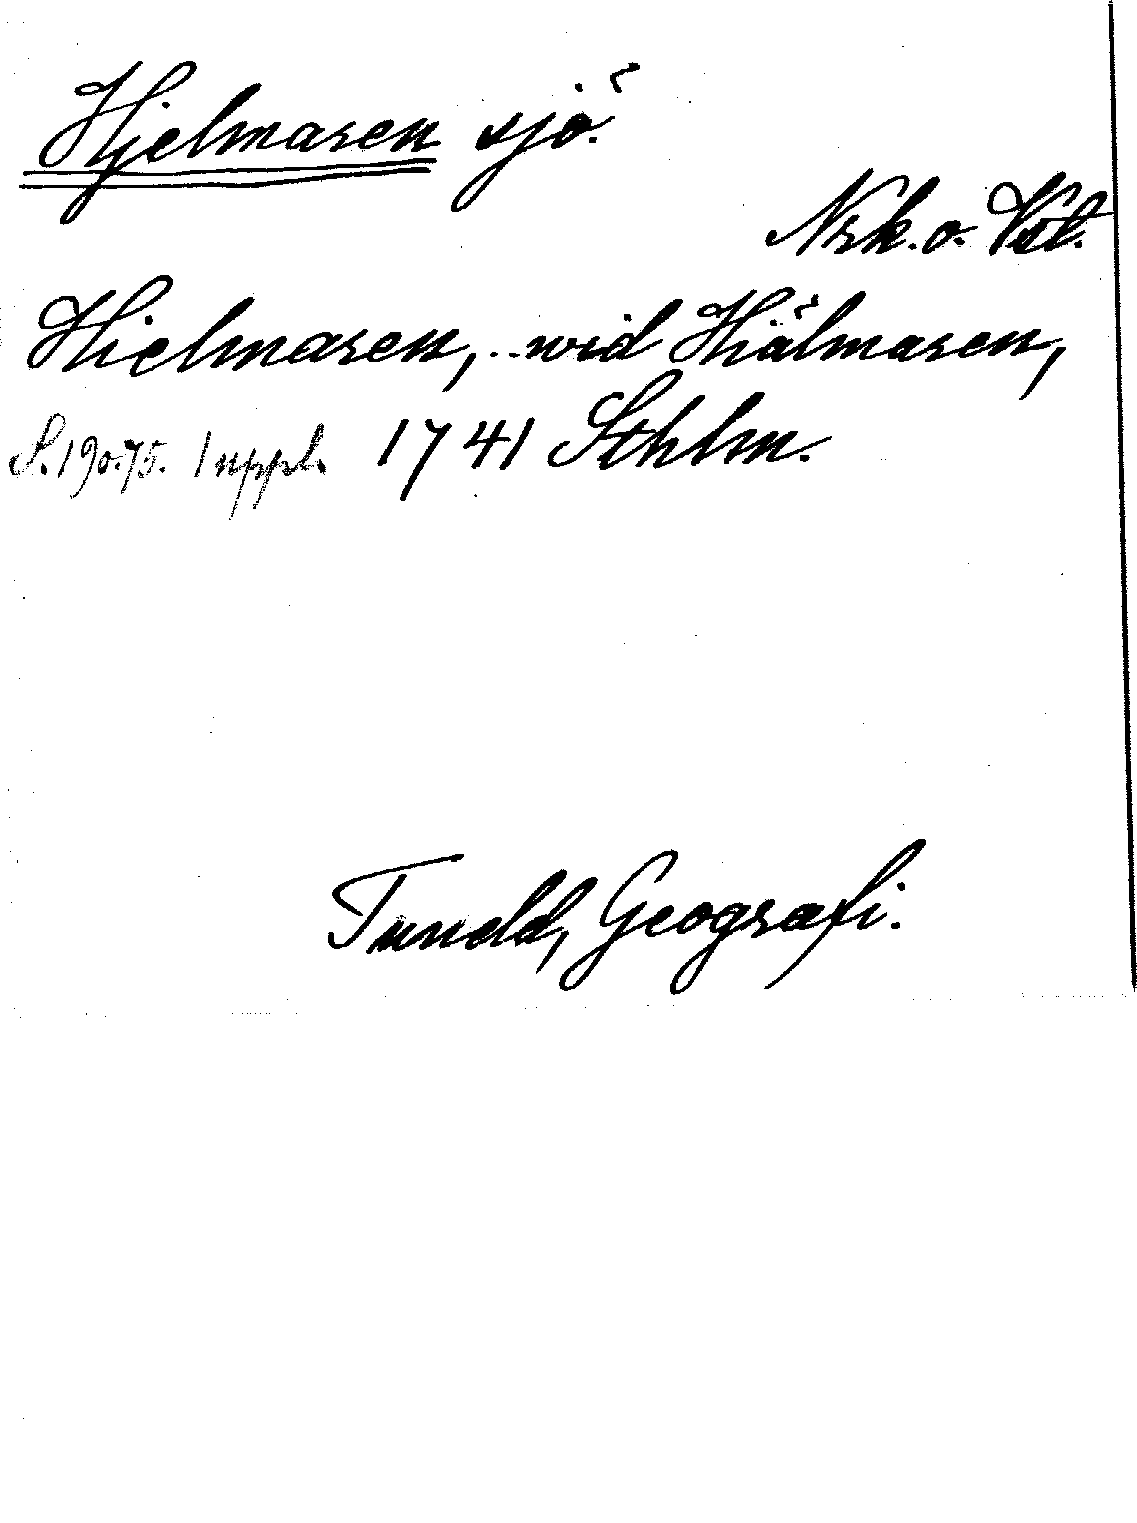 Hjelmaren sjö.
Nrk. o. Vstl.
Hielmaren, .. wid Hiälmaren,
S. 190. 75. 1 uppl. 1741 Sthlm.
Tuneld, Geografi.